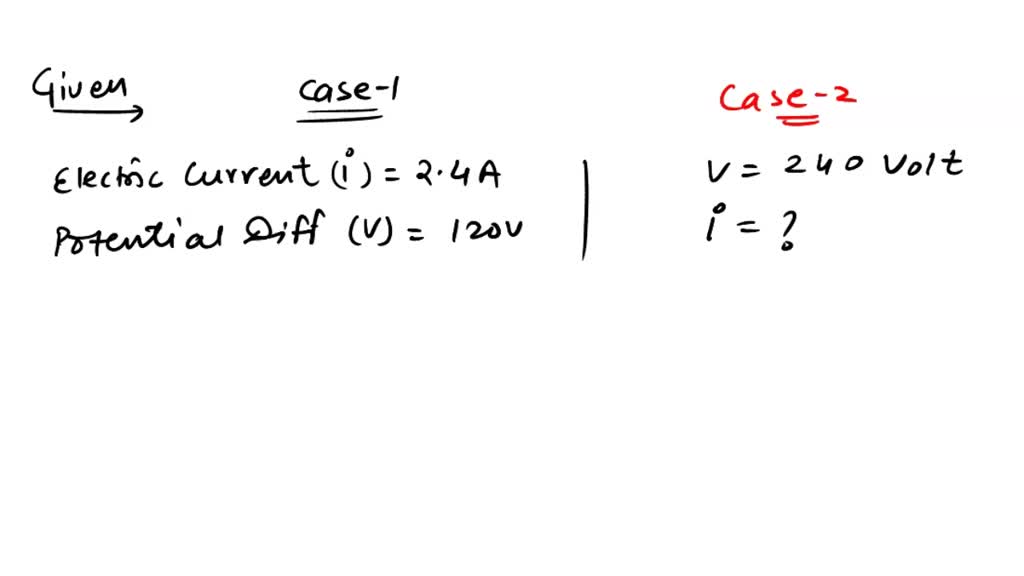 Given
Case-1
Electric Current (i) = 2.4A
Potential Diff (V) = 120V
Case-2
V = 240 Volt
i = ?